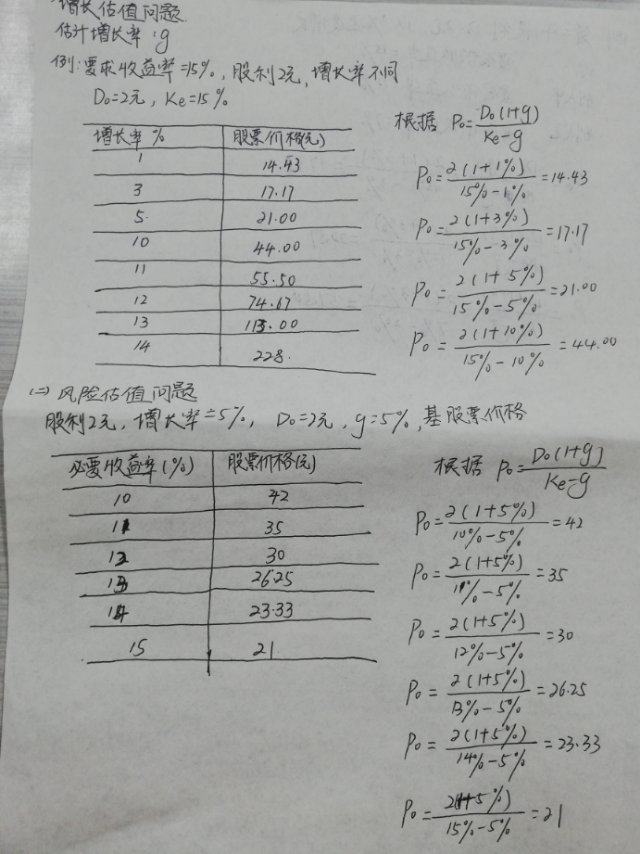 增长估值问题
估计增长率:g
例:要求收益率=15%,股利2元,增长率不同
D₀=2元,Ke=15%
增长率% 股票价格(元)
1 14.43
3 17.17
5. 21.00
10 44.00
11 55.50
12 74.67
13 113.00
14 228.
根据 P₀=D₀(1+g)/Ke-g
P₀=2(1+1%)/15%-1%=14.43
P₀=2(1+3%)/15%-3%=17.17
P₀=2(1+5%)/15%-5%=21.00
P₀=2(1+10%)/15%-10%=44.00
(二)风险估值问题
股利2元,增长率=5%, D₀=2元,g=5%,基股票价格
必要收益率(%) 股票价格(元)
10 42
11 35
12 30
13 26.25
14 23.33
15 21
根据 P₀=D₀(1+g)/Ke-g
P₀=2(1+5%)/10%-5%=42
P₀=2(1+5%)/11%-5%=35
P₀=2(1+5%)/12%-5%=30
P₀=2(1+5%)/13%-5%=26.25
P₀=2(1+5%)/14%-5%=23.33
P₀=2(1+5%)/15%-5%=21